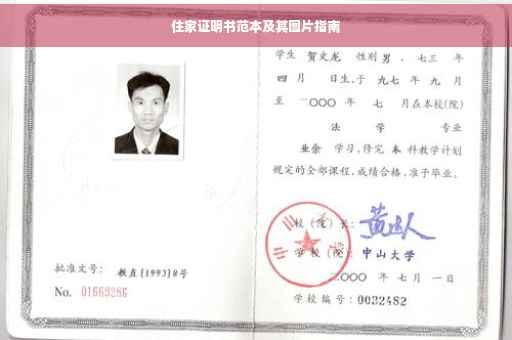 住家证明书范本及其图片指南
学生 贺文龙 性别 男 、七三 年
四 月 日生,于 九七 年 九 月
至 二〇〇〇 年 七 月在本校(院)
法 学 专业
业余 学习,修完 本 科教学计划
规定的全部课程,成绩合格,准予毕业。
校(院)长:
学校(院): 中山大学
二〇〇〇 年 七 月 一 日
学校编号: 0032482
批准文号: 教直(1993)8号
No. 01669286